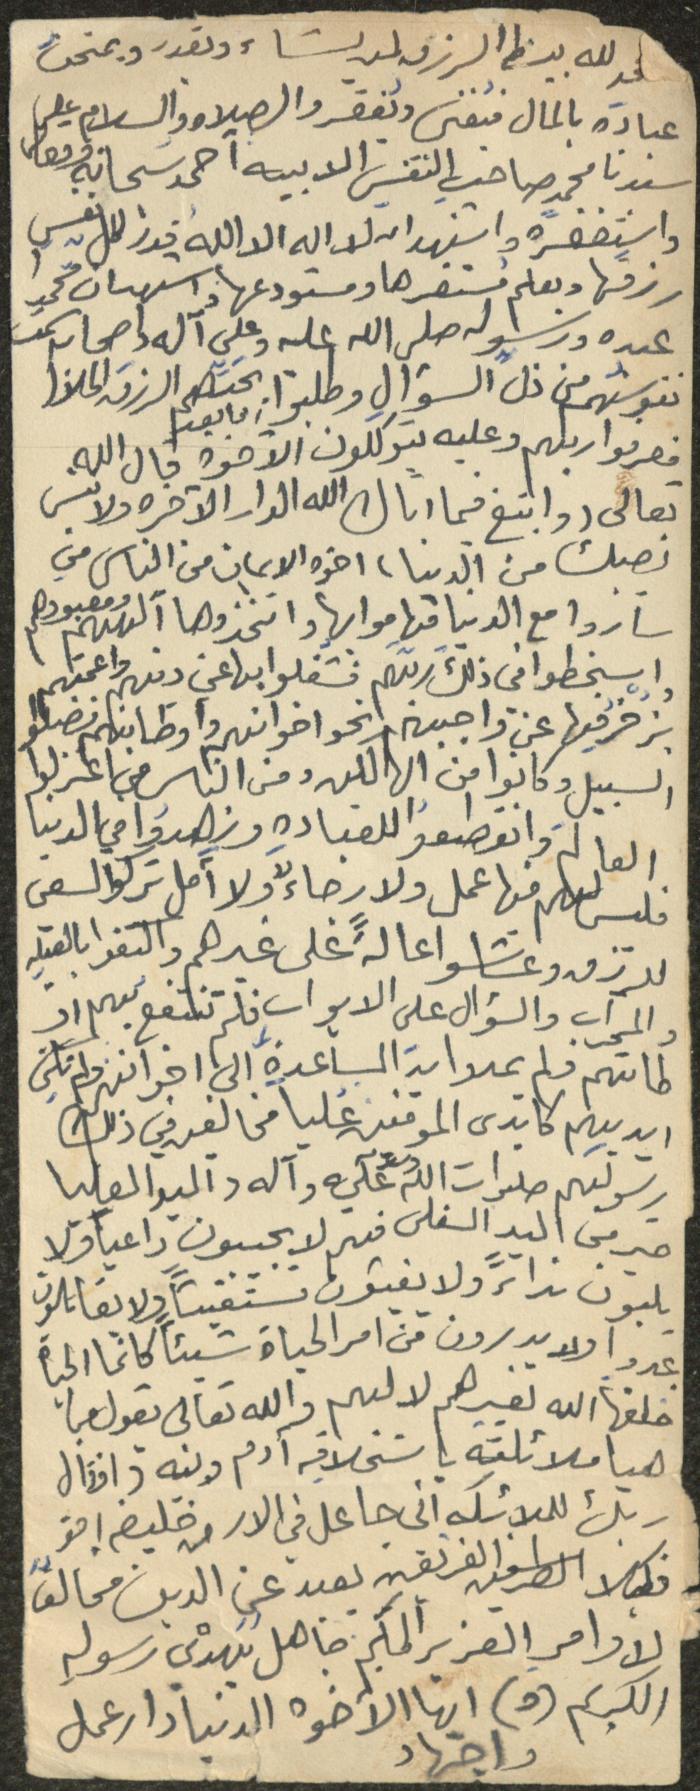 الحمد لله يبسط الرزق لمن يشاء ويقدر ويمتحن
عباده بالمال فيغني ويفقر والصلاة والسلام على
سيدنا محمد صاحب النفس الابيه أحمده سبحانه وتعالى
واستغفره واشهد ان لا اله الا الله قدر لكل نفس
رزقها ويعلم مستقرها ومستودعها واشهد ان محمدا
عبده ورسوله صلى الله عليه وعلى آله واصحابه
نفوسهم من ذل السؤال وطلبوا الرزق الحلال
فعرفوا ربهم وعليه يتوكلون اما بعد الاخوه قال الله
تعالى (وابتغ فيما اتاك الله الدار الآخره ولا تنس
نصيبك من الدنيا) اخوه الايمان من الناس من
ساروا مع الدنيا واتخذوها آلهتهم ومعبودهم
واسخطوا في ذلك ربهم فشغلوا بها عن دينهم واعمتهم
بزخرفها عن واجبهم نحو اخوانهم واوطانهم فضلوا
السبيل وكانوا من الهالكين ومن الناس من اعتزلوا
العالم وانقطعوا للعباده وزهدوا في الدنيا
فليس لهم فيها عمل ولا رجاء ولا أمل تركوا السعي
للرزق وعاشوا عالة على غيرهم واكتفوا بالقبله
والمحراب والسؤال على الابواب فلم تنتفع بهم او
طانهم ولم يمدوا يد المساعدة الى اخوانهم ولم تكن
ايديهم كايدى الموقنين عليا مخالفين في ذلك
رسولهم صلوات الله عليه وآله واليد العليا
خير من اليد السفلى فهم لا يجيبون داعيا ولا
يلبون نداءً ولا يغيثون مستغيثاً ولا يقاتلون
عدوا ولا يدرون من امر الحياة شيئاً كأنما الحياة
خلقها الله لغيرهم لا لهم والله تعالى يقول
ملائكته باستخلاف آدم وبنيه (واذ قال
ربك للملائكة اني جاعل في الارض خليفه)
فكلا الفريقين بعيد عن الدين مخالف
لاوامر العزيز الحكيم جاهل بهدى رسوله
الكريم (م) ايها الاخوه الدنيا دار عمل
واجتهاد